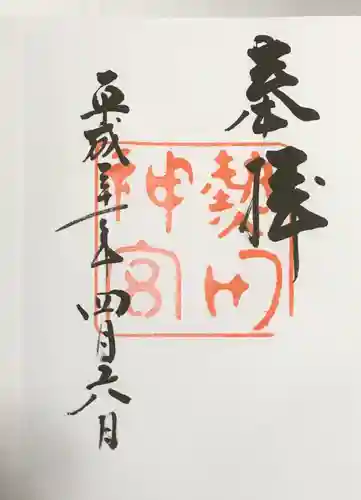 奉拝
熱田
神宮
平成三十一年四月六日